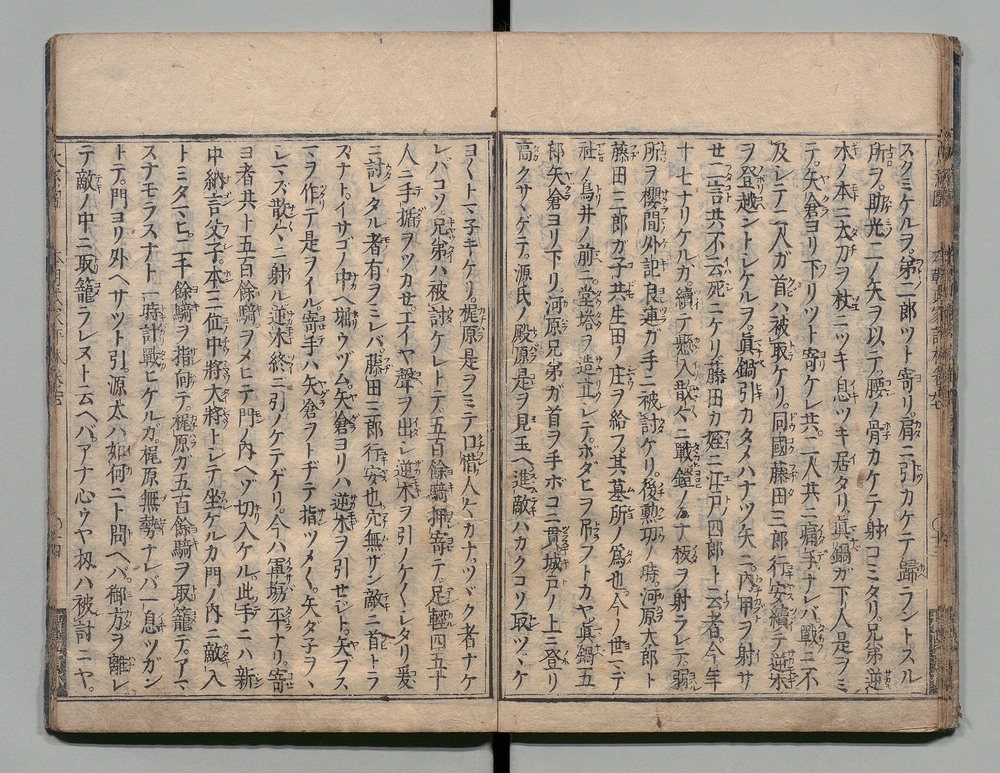 スクミケルヲ。弟二郎ツト寄リ。肩ニ引カケテ歸ラントスル
所ヲ。助光二ノ矢ヲ以テ。腰ノ骨カケテ射コミタリ。兄弟逆
木ノ本ニ太刀ヲ杖ニツキ息ツキ居タリ。眞鍋ガ下人是ヲミ
テ。矢倉ヨリ下リツト寄ケレ共。二人共ニ痛手ナレバ。戰ニ不
及シテ二人ガ首ハ被取ケリ。同國藤田三郎行安續テ逆木
ヲ登越ントシケルヲ。眞鍋引カタメハナツ矢ニ。内甲ヲ射サ
セ一言共不云死ニケリ。藤田カ姪ニ江戸四郎ト云者。今年
十七ナリケルガ續テ懸入散々ニ戰。鎧ノ
所ヲ櫻間外記良連ガ手ニ被討ケリ。後勲功ノ時。河原太郎ト
藤田三郎ガ子共生田ノ庄ヲ給フ。其墓所ノ爲也。今ノ世マデ
社ノ鳥井ノ前ニ堂塔ヲ造立シテ。ボダヒヲ吊フトカヤ。眞鍋五
郎矢倉ヨリ下リ。河原兄弟ガ首ヲ手ボコニ貫城戸ノ上ニ登リ
高クサヽゲテ。源氏ノ殿原是ヲ見玉ヘ進敵ハカクコソ取ツヽケ
ヨ〱トマ子キケリ。梶原是ヲミテ口惜人々カナ。ツヾク者ナケ
レバコソ。兄弟ハ被討ケレトテ。五百餘騎押寄テ。足輕四五十
人ニ手楯ヲツカセ。エイヤ聲ヲ出シ逆木ヲ引ノケ〱シタリ爰
ニ討レタル者有ヲミレバ藤田三郎行安也。穴無ザン敵ニ首トラ
スナト。イサゴノ中ヘ堀ウヅム。矢倉ヨリハ逆木ヲ引せジト。矢ブス
マヲ作テ是ヲイル寄手ハ矢倉ヲトヂテ指ツメ〱。矢ダ子ヲ、
レマズ散々ニ射ル。逆木終ニ引ノケテゲリ。今ハ軍場平ナリ。寄
ヨ者共ト五百餘騎ヲメヒテ門ノ内ヘゾ切入ケル。此手ニハ新
中納言父子。本三位中將大將トシテ坐ケルカ門ノ内ニ敵入
トミタマヒ。二千餘騎ヲ指向テ。梶原ガ五百餘騎ヲ取籠テ。アマ
スナモラスナト一時計戰ヒケルガ。梶原無勢ナレバ一息ツガン
トテ。門ヨリ外ヘサツト引。源太ハ如何ニト問ヘバ。御方ヲ離レ
テ敵ノ中ニ取籠ラレヌト云ヘバ。アナ心ウヤ扨ハ被討ニヤ。